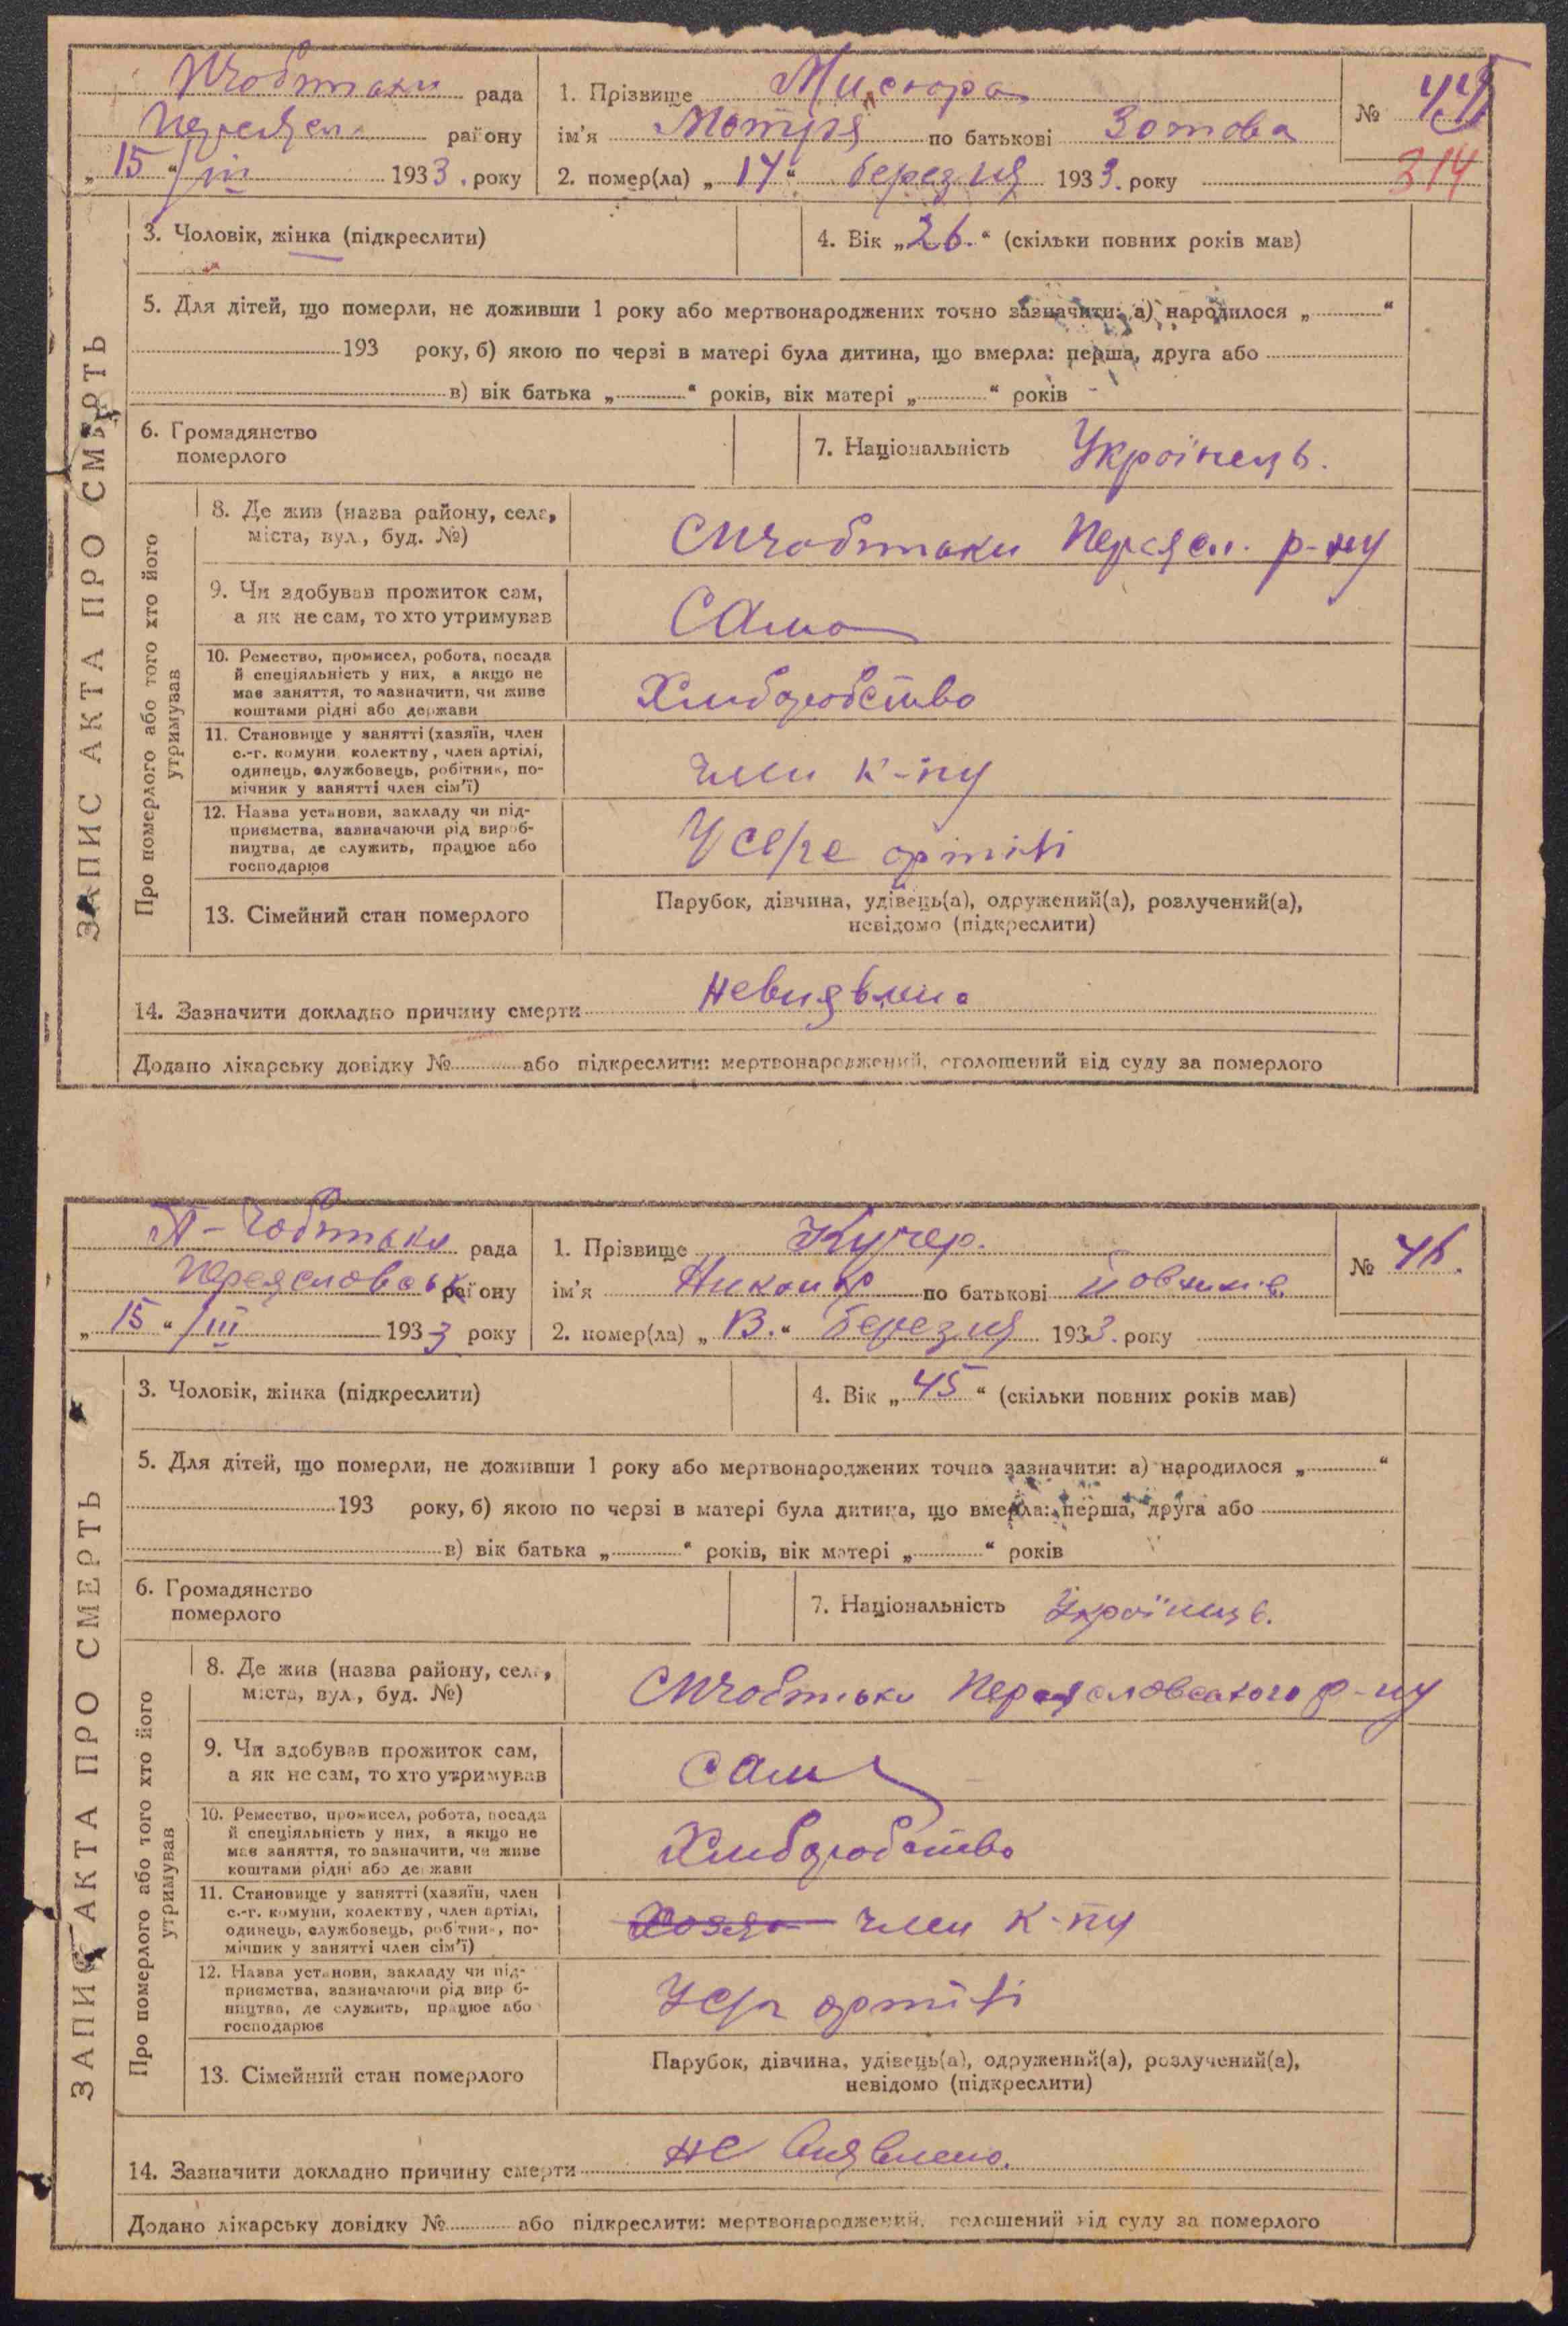 Пчобітьки рада
Переясл. району
„15“ / III 1933. року
1. Прізвище Мисюра
ім'я Мотря по батькові Зотова
2. помер(ла) „14“ березня 1933. року
№ 45
314
ЗАПИС АКТА ПРО СМЕРТЬ
3. Чоловік, жінка (підкреслити)
4. Вік „26.“ (скільки повних років мав)
5. Для дітей, що померли, не доживши 1 року або мертвонароджених точно зазначити: а) народилося „ “
193 року, б) якою по черзі в матері була дитина, що вмерла: перша, друга або
в) вік батька „ “ років, вік матері „ “ років
6. Громадянство
померлого
7. Національність Українець.
Про померлого або того хто його
утримував
8. Де жив (назва району, села,
міста, вул., буд. №)
СПчобітьки Переясл. р-ну
9. Чи здобував прожиток сам,
а як не сам, то хто утримував
Сама
10. Ремество, промисел, робота, посада
й спеціяльність у них, а якщо не
має заняття, то зазначити, чи живе
коштами рідні або держави
Хліборобство
11. Становище у занятті (хазяїн, член
с.-г. комуни, колектву, член артілі,
одинець, службовець, робітник, по-
мічник у занятті член сім'ї)
член к-пу
12. Назва установи, закладу чи під-
приємства, зазначаючи рід вироб-
ництва, де служить, працює або
господарює
У артілі
13. Сімейний стан померлого
Парубок, дівчина, удівець(а), одружений(а), розлучений(а),
невідомо (підкреслити)
14. Зазначити докладно причину смерти невиявлена
Додано лікарську довідку № або підкреслити: мертвонароджений, оголошений від суду за померлого
П-Чобітьки рада
Переяславськ району
„15“ / III 1933 року
1. Прізвище Кучер.
ім'я по батькові
2. помер(ла) „13.“ березня 1933. року
№ 46.
ЗАПИС АКТА ПРО СМЕРТЬ
3. Чоловік, жінка (підкреслити)
4. Вік „45“ (скільки повних років мав)
5. Для дітей, що померли, не доживши 1 року або мертвонароджених точно зазначити: а) народилося „ “
193 року, б) якою по черзі в матері була дитина, що вмерла: перша, друга або
в) вік батька „ “ років, вік матері „ “ років
6. Громадянство
померлого
7. Національність Українець.
Про померлого або того хто його
утримував
8. Де жив (назва району, села,
міста, вул., буд. №)
СПчобітьки Переяславського р-ну
9. Чи здобував прожиток сам,
а як не сам, то хто утримував
сам
10. Ремество, промисел, робота, посада
й спеціяльність у них, а якщо не
має заняття, то зазначити, чи живе
коштами рідні або держави
Хліборобство
11. Становище у занятті (хазяїн, член
с.-г. комуни, колектву, член артілі,
одинець, службовець, робітник, по-
мічник у занятті член сім'ї)
член к-пу
12. Назва установи, закладу чи під-
приємства, зазначаючи рід вироб-
ництва, де служить, працює або
господарює
У артілі
13. Сімейний стан померлого
Парубок, дівчина, удівець(а), одружений(а), розлучений(а),
невідомо (підкреслити)
14. Зазначити докладно причину смерти не виявлено.
Додано лікарську довідку № або підкреслити: мертвонароджений, голошений від суду за померлого